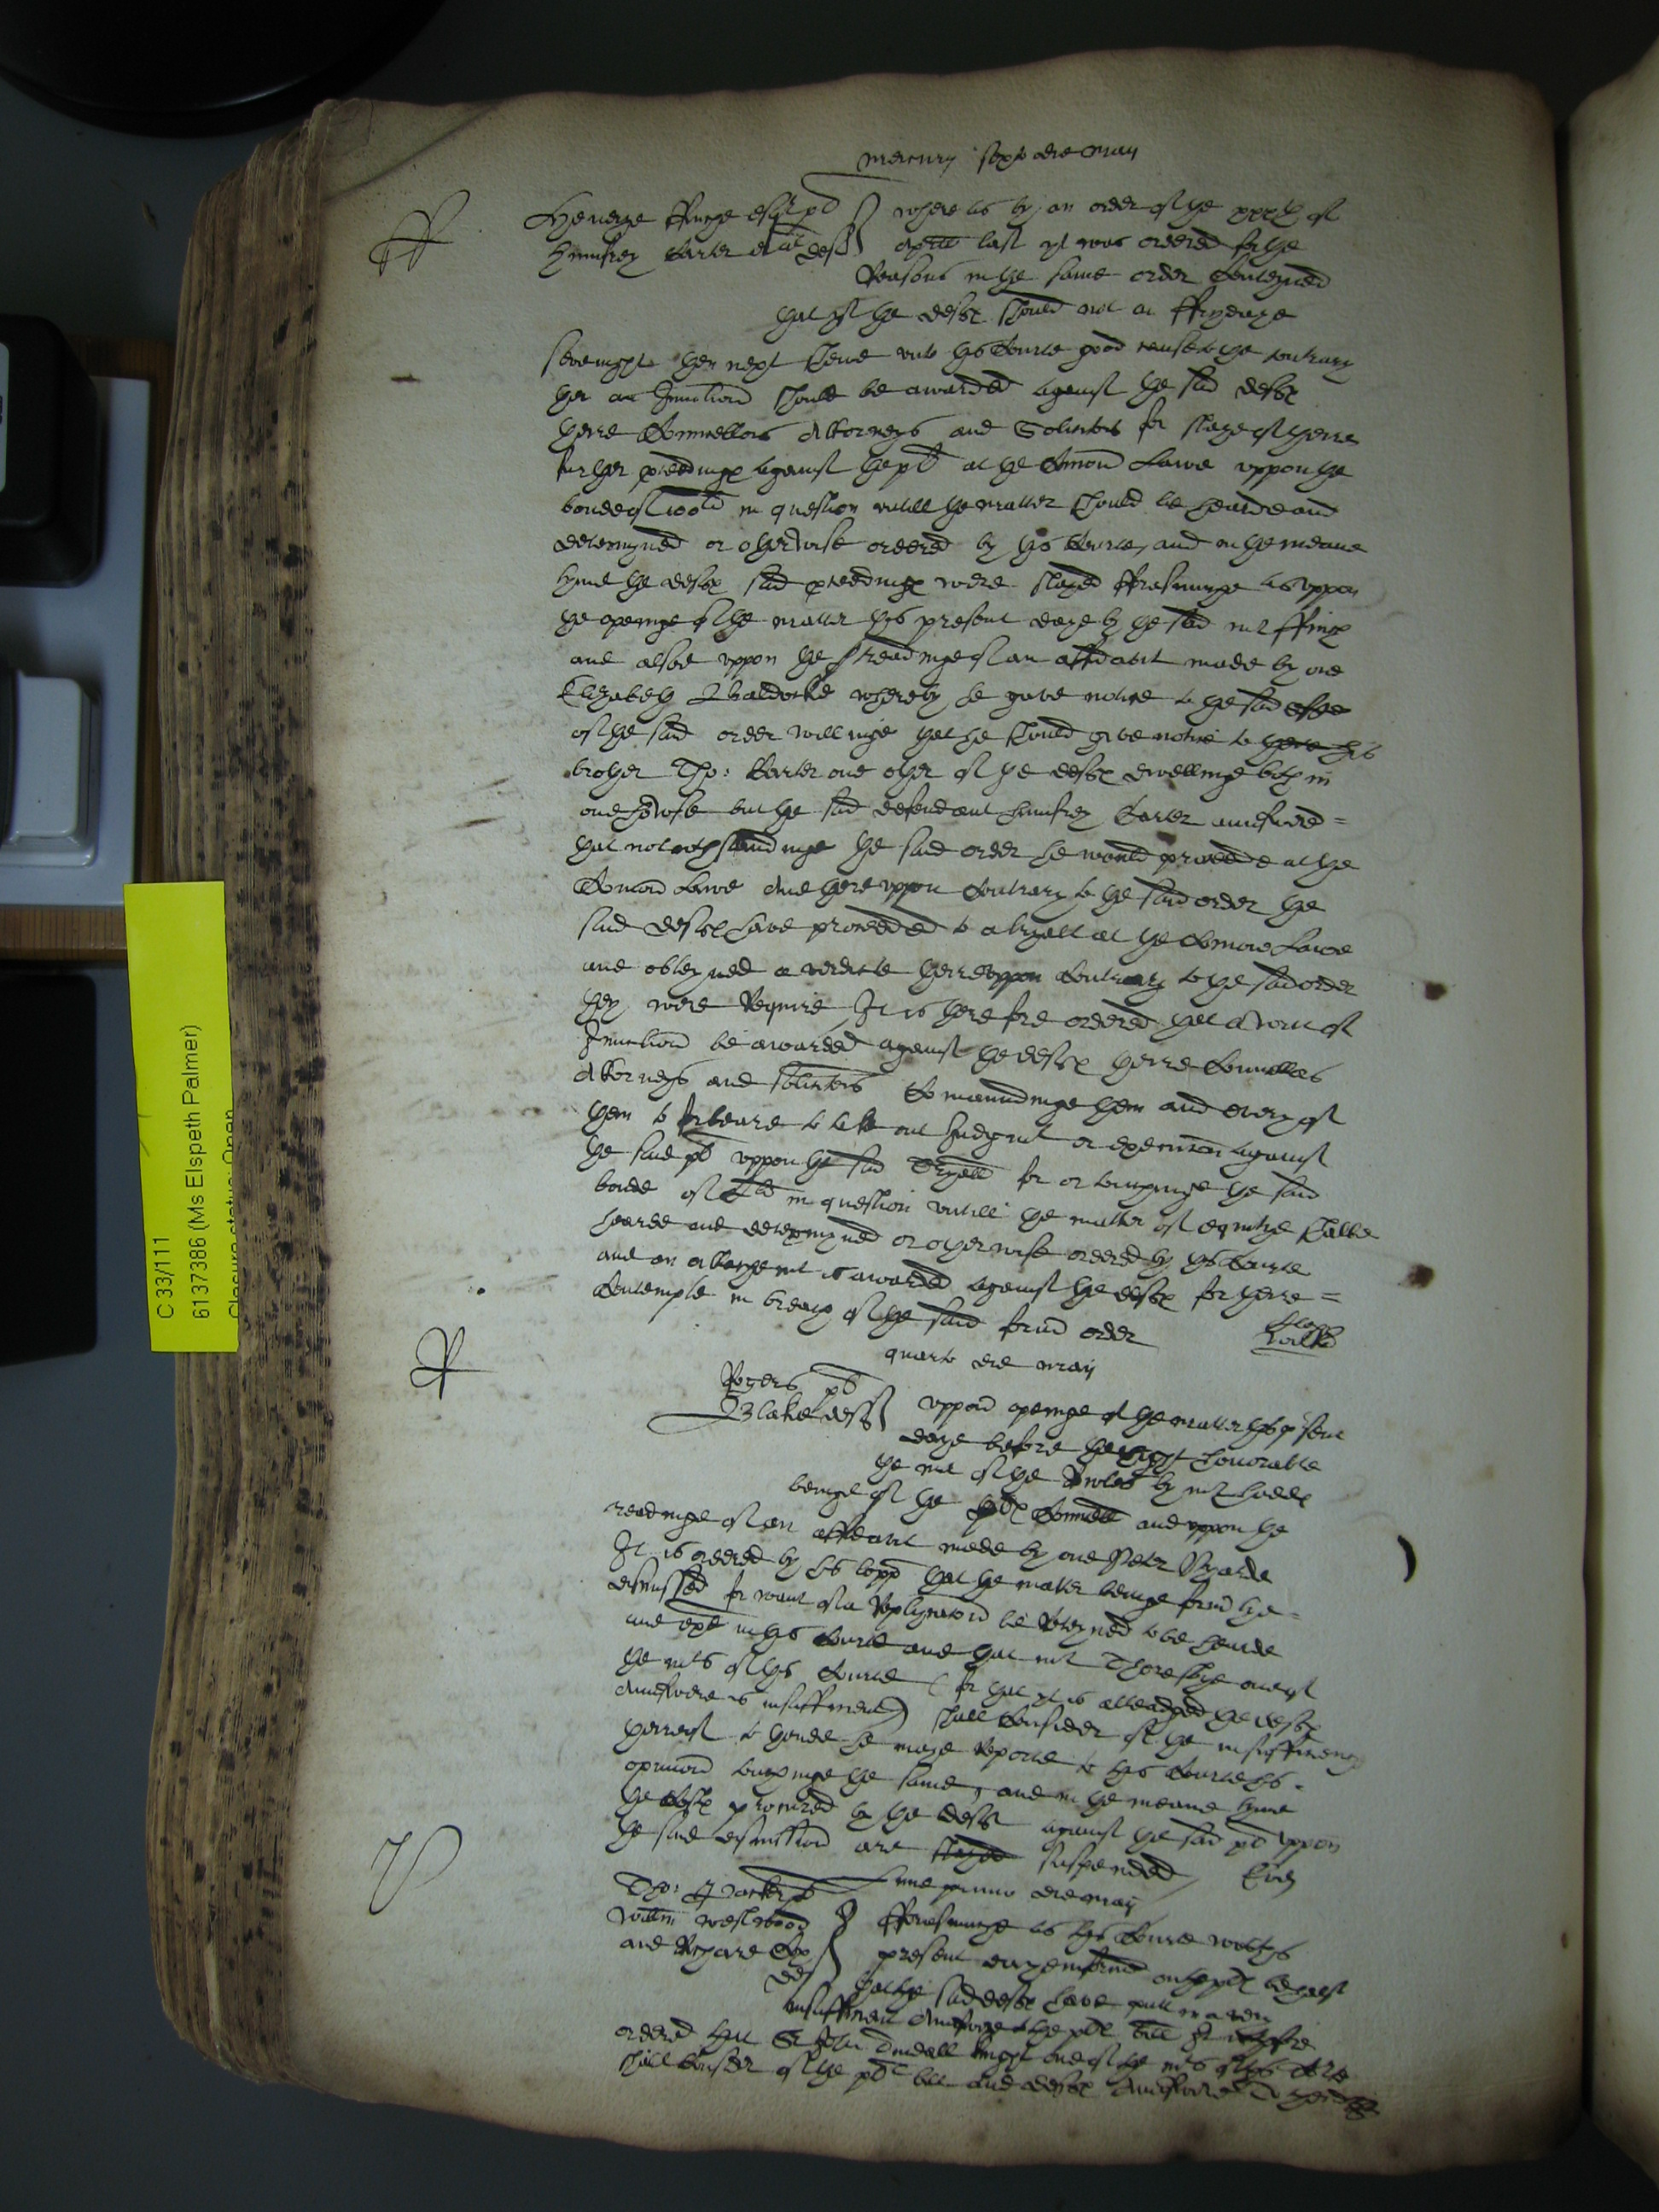 mercurij sexto die maij
ff
Henerye ffinge esqr pl
Humfrey Carter et al def
whereas by an order of the xxxth of
Aprill last yt was ordered for the
Reasons in the same order Conteyned
that yf the deftes should not on ffrydaye
sevenight then next shewe unto this Courte good cause to the contrary
then an Iniunction should be awarded against the said deftes
theire Counsellors Attorneys and Solicitors for staye of theire
further proceedinges against the pl at the Comon Lawe uppon the
bonde of 100li in question untill the matter should be hearde and
determyned or otherwise ordered by this Courte, and in the meane
tyme the deftes said proceedinges were stayed fforasmuche as uppon
the openinge of the matter this present daye by the said mr ffinge
and alsoe uppon the readinge of an affidavit made by one
Elizabeth whereby he gave notice to the said
of the said order willinge that he should give notice to there his
brother Tho: Carter one other of the deftes dwellinge both in
one howse but the said defendant Humfrey Carter aunswered =
that notwithstandinge the said order he would proceede at the
Comon Lawe And thereuppon Contrary to the said order the
said deftes have proceeded to a tryall at the Comon Lawe
and obteyned a verdicte thereuppon Contrary to the said order
they were Require It is therefore ordered that a writt of
Iniunction be awarded against the deftes theire Counsellors
Attorneys and solicitors Comaundinge them and every of
them to forbeare to take out Iudgmt or execucion against
the said pl uppon the said Tryall for or touchinge the said
bonde of Cli in question untill the matter of equitye shalbe
hearde and determyned or otherwise ordered by this Courte
and an attachemt is awarded against the deftes for theire =
Contempte in breach of the said former order
quarto die maij
R
Rogers pl
Blake def
uppon openinge of the matter this psent
daye before the right honorable
the mr of the Rowles by mr
beinge of the ples Counsell and uppon the
readinge of an affidavit made by one Peter
It is ordered by his lopp that the matter beinge formerlye =
dismissed for want of a Replycacion be Reteyned to be hearde
and in this Courte and that mr Thoresbye one of
the mrs of this Courte (for that yt is alleadged the deftes
Aunswere is insufficient) shall Consider of the insufficiency
thereof to thende he maye Reporte to this Courte his
opinion touchinge the same, and in the meane tyme
the costes procured by the deft against the said pl uppon
the said dismission are stayed suspended
lune primo die maij
Tho: pl
Willm westwood
and Rychard Cox
def
fforasmuche as this Courte was this
present daye informed on the ples behalf
that the said deftes have putt in a very
insufficient Aunswere to the ples bill It is therefore
ordered that Sr John Tindall knight one of the mrs of this Corte
shall Consider of the ples bill and deftes Aunswere
C 33/111
6137386 (Ms Elspeth Palmer)
Closure status: Open